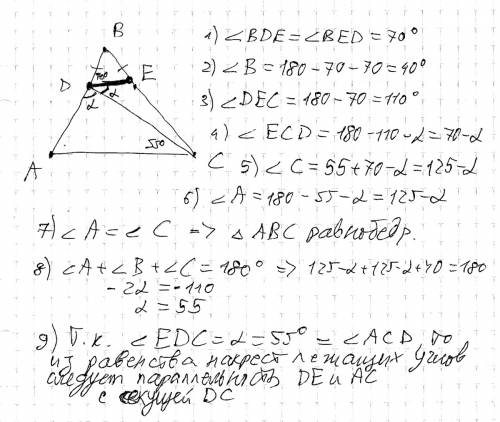 B
D
70°
E
α
α
55°
A
C
1) ∠BDE = ∠BED = 70°
2) ∠B = 180 - 70 - 70 = 40°
3) ∠DEC = 180 - 70 = 110°
4) ∠ECD = 180 - 110 - α = 70 - α
5) ∠C = 55 + 70 - α = 125 - α
6) ∠A = 180 - 55 - α = 125 - α
7) ∠A = ∠C => △ABC равнобедр.
8) ∠A + ∠B + ∠C = 180° => 125 - α + 125 - α + 40 = 180
- 2α = -110
α = 55
9) Т.к. ∠EDC = α = 55° = ∠ACD, то
из равенства накрест лежащих углов
следует параллельность DE и AC
с секущей DC